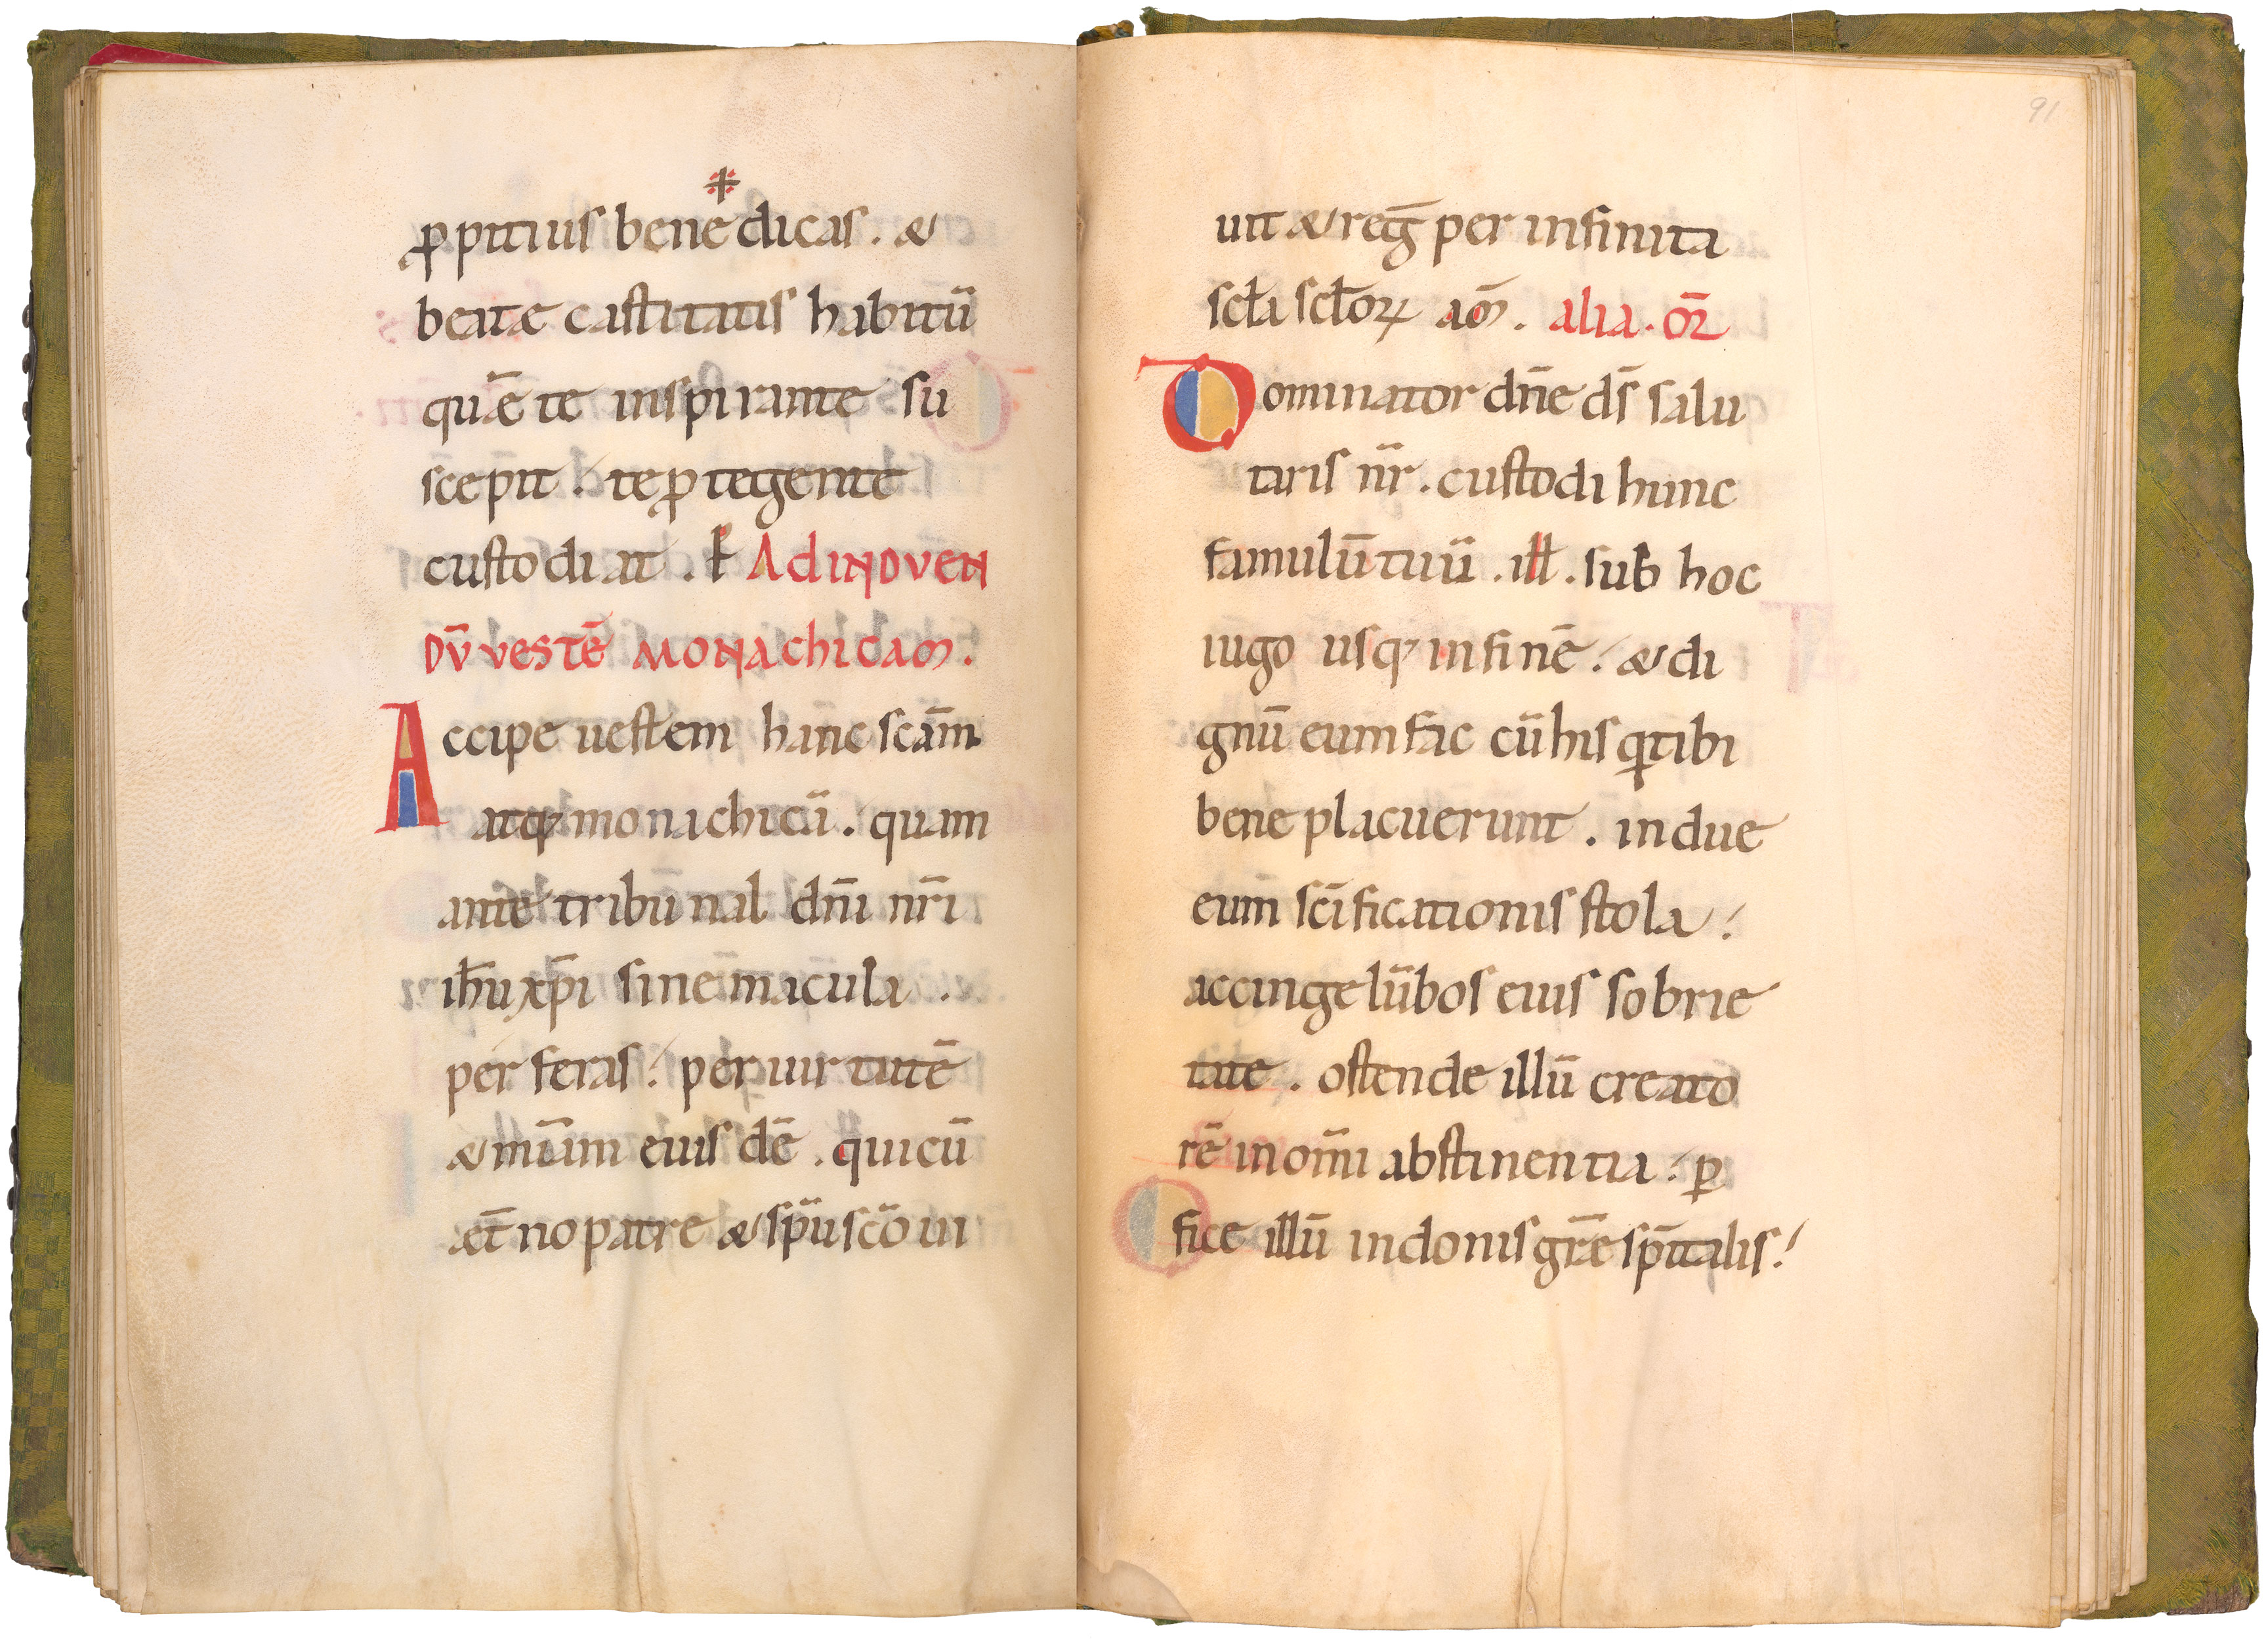 ꝓpitius benedicas. &
beatæ castitatis habitū
quē te inspirante su
scepit. te ꝓtegente
custodiat. ꝑ Ad induen
dū vestē monachicam.
Accipe uestem hanc scām
atqꝫ monachicā. quam
ante tribunal dn̄i nr̄i
ih̄u xp̄i sine macula.
perferas. per uirtutē
& mīam eiusdē. qui cū
æt̄no patre & sp̄u scō ui
91
uit & reḡ per infinita
scła scłoꝝ am̄. alia. or̄
Dominator dn̄e ds̄ salu
taris nr̄. custodi hunc
famulū tuū. ill̄. sub hoc
iugo usqꝫ in finē. & di
gnū eum fac cū his q̄ tibi
bene placuerunt. indue
eum scīficationis stola.
accinge lūbos eius sobrie
tate. ostende illū creato
rē in om̄i abstinentia. ꝑ
fice illū in donis gr̄e sp̄italis.